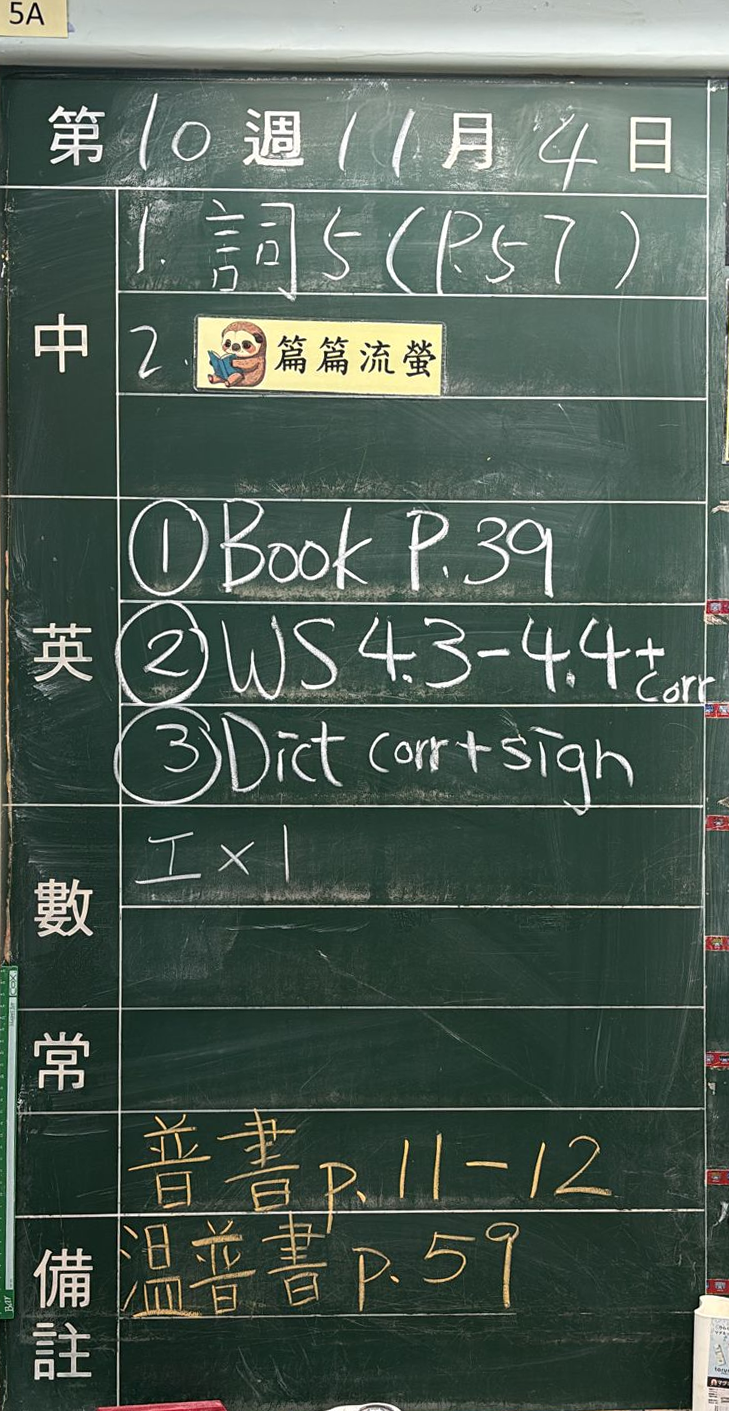 5A
第10週11月4日
中
1. 詞5(P.57)
2. 篇篇流螢
英
① Book P.39
② WS 4.3-4.4+corr
③ Dict corr+sign
數
工×1
常
普書p.11-12
備註
溫普書p.59